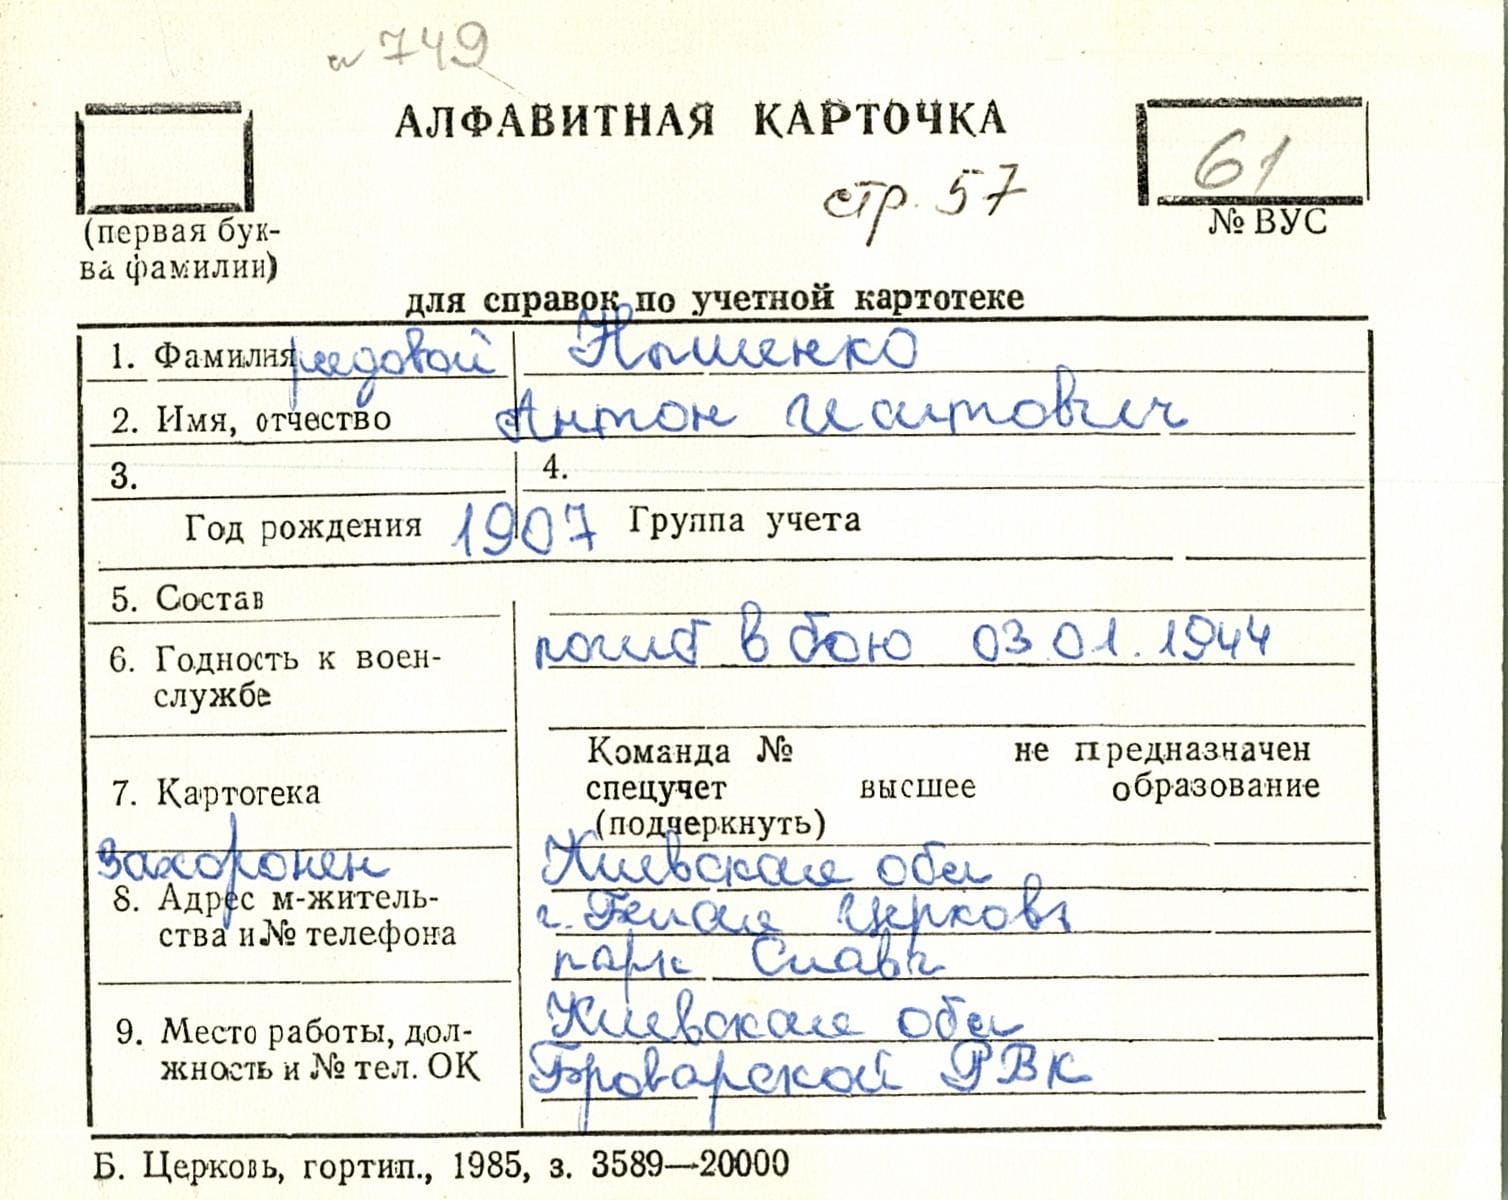 749
АЛФАВИТНАЯ КАРТОЧКА
стр. 57
61
(первая бук-
ва фамилии)
№ ВУС
для справок по учетной картотеке
1. Фамилия рядовой
2. Имя, отчество Антон
3. 4.
Год рождения 1907 Группа учета
5. Состав
погиб в бою 03.01.1944
6. Годность к воен-
службе
Команда № не предназначен
7. Картотека спецучет высшее образование
(подчеркнуть)
захоронен Киевская обл
8. Адрес м-житель-
ства и № телефона
г. Белая Церковь
парк Славы
9. Место работы, дол-
жность и № тел. ОК
Киевская обл
Броварской РВК
Б. Церковь, гортип., 1985, з. 3589—20000